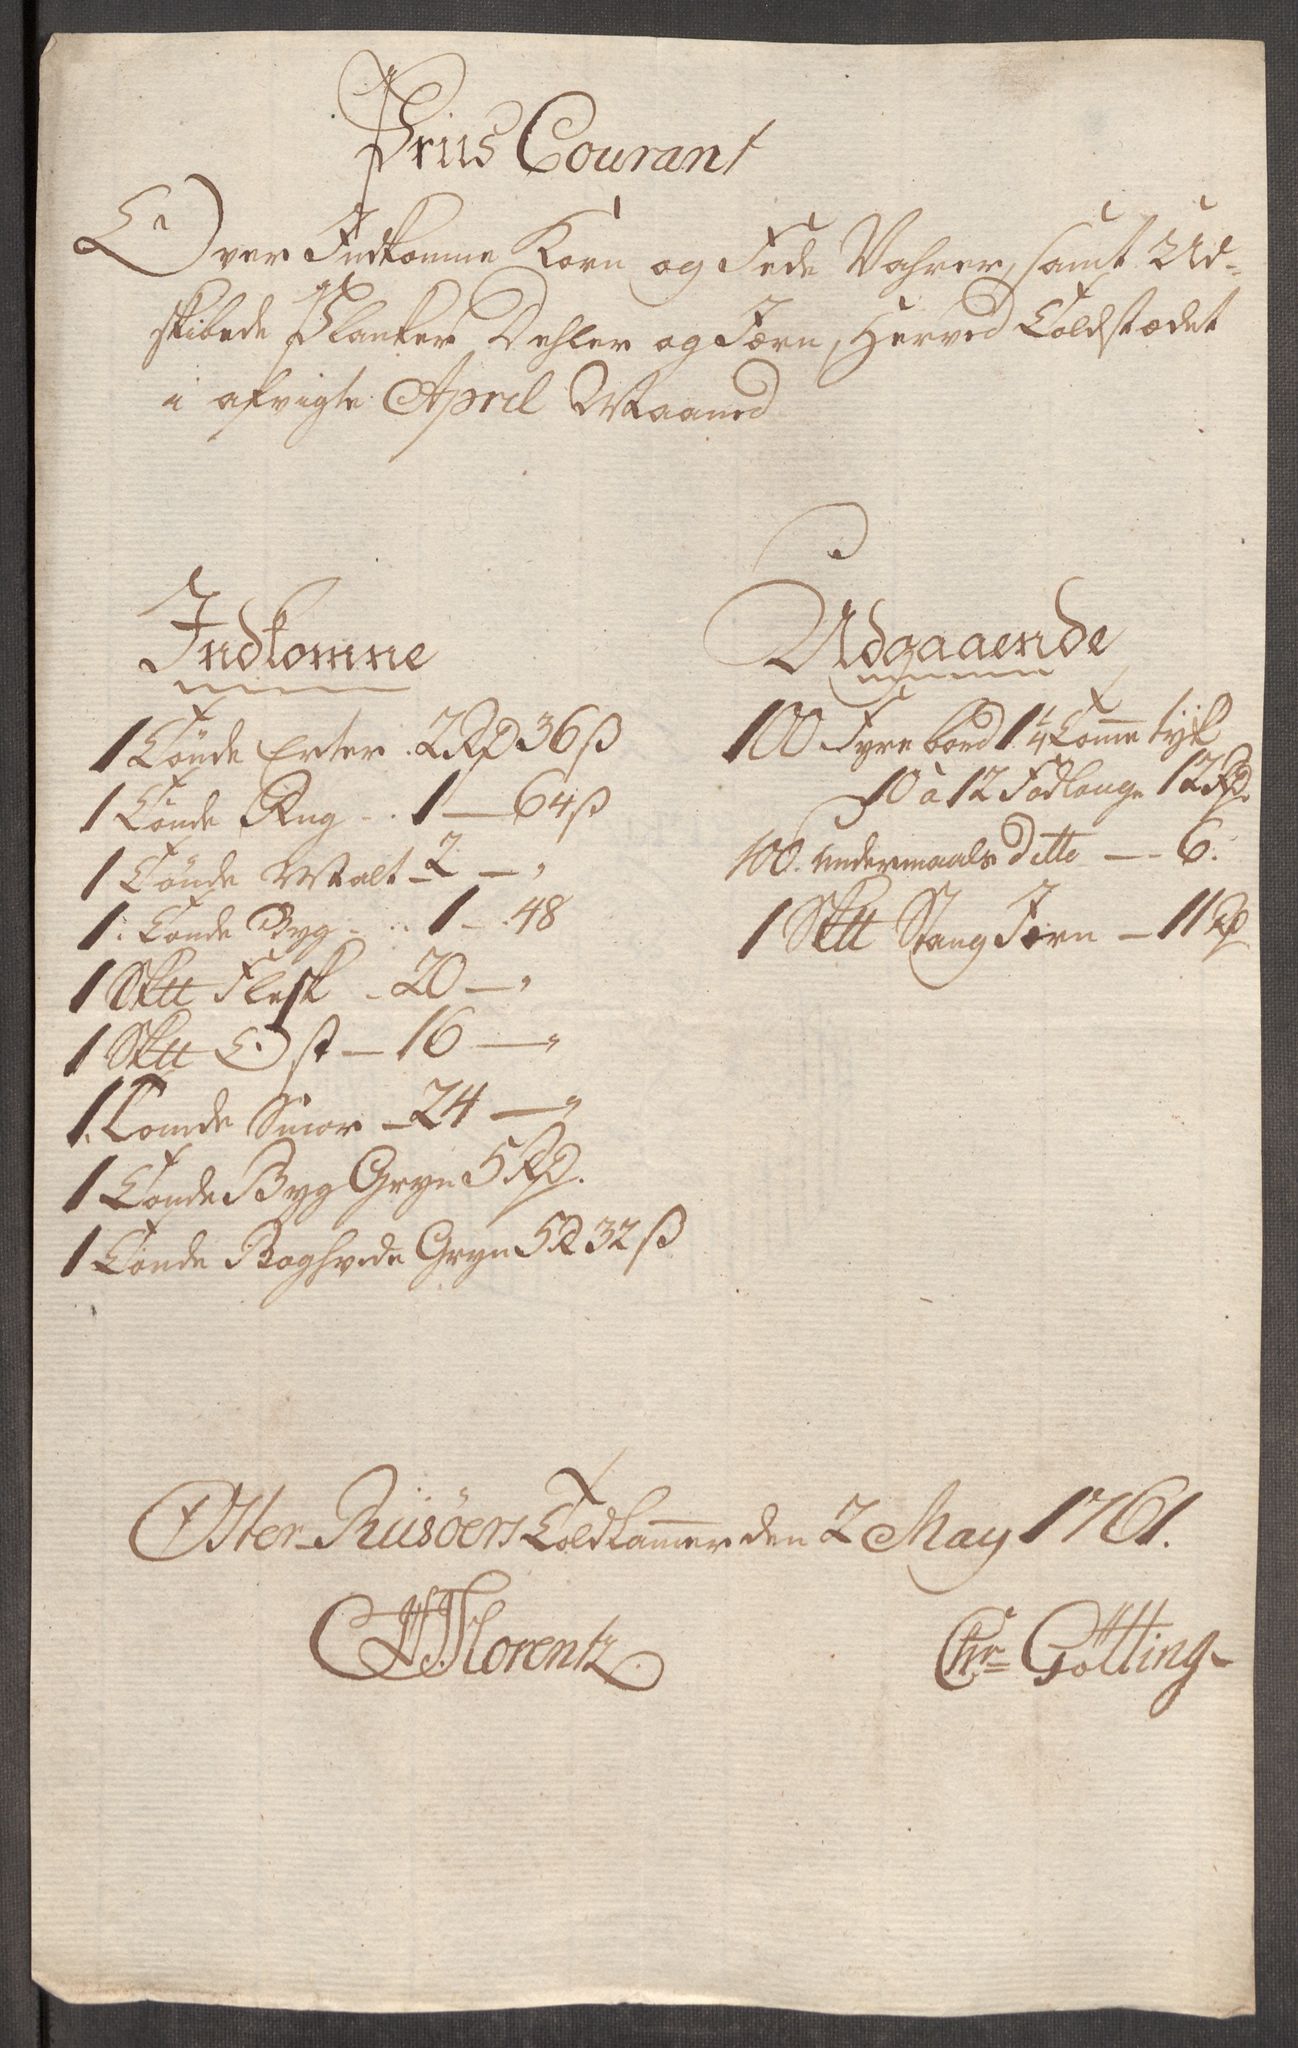 Priis Courant
Over Indkomne Korn og Fede Vahrer, samt Ud-
skibede Planker Dehler og Jærn, Herved Toldstædet
i afvigte April Maaned
Indkomne
1 Tönde Erter . 2 Rd 36 ß
1 Tönde Rug - . 1 — 64 ß
1 Tönde Malt - 2 — "
1. Tönde Byg - .. 1 - . 48
1 Sktt Flesk - 20 — "
1 Sktt Ost — 16 — "
1. Tonde Smør - 24 — "
1 Tönde Byg Gryn 5 Rd.
1 Tönde Boghvede Gryn 5 R 32 ß
Udgaaende
100 Fyrre bord 1 1/4 Tomme tÿk
10 à 12 Fod lange 12 Rd.
100. undermaals Ditto — - 6.
1 Sktt Stang Jærn — 11 Rd
Öster-Riisöers Toldkammer den 2 May 1761.
Florentz
Chr= Götting